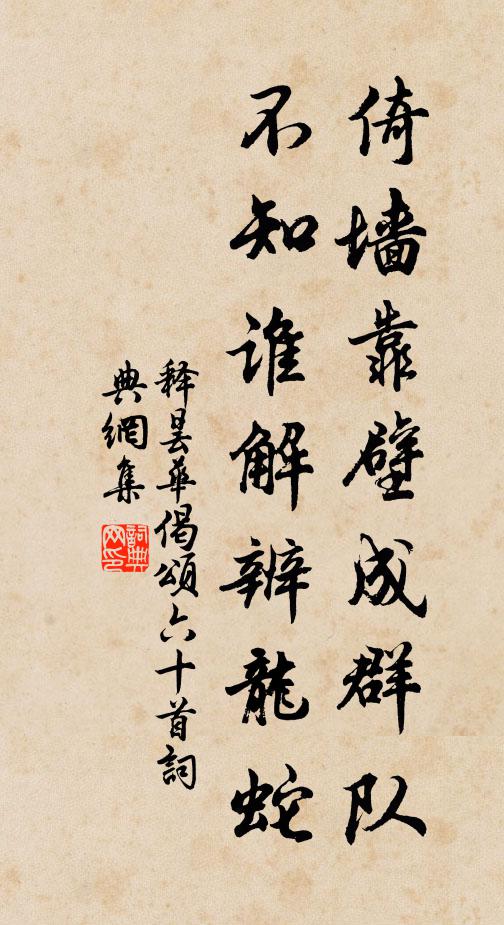 倚墙靠壁成群队
不知谁解辨龍蛇
释昙華偈頌六十首詞
典網集
詞典网印